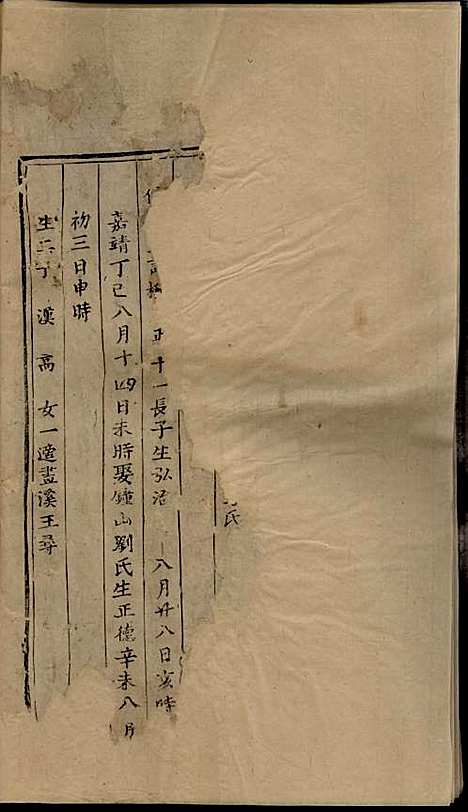 氏
正十一長子生弘治 八月廿八日亥時
嘉靖丁巳八月十四日未時娶鐘山劉氏生正德辛未八月
初三日申時
生二子 漢 高 女一適盖溪王尋